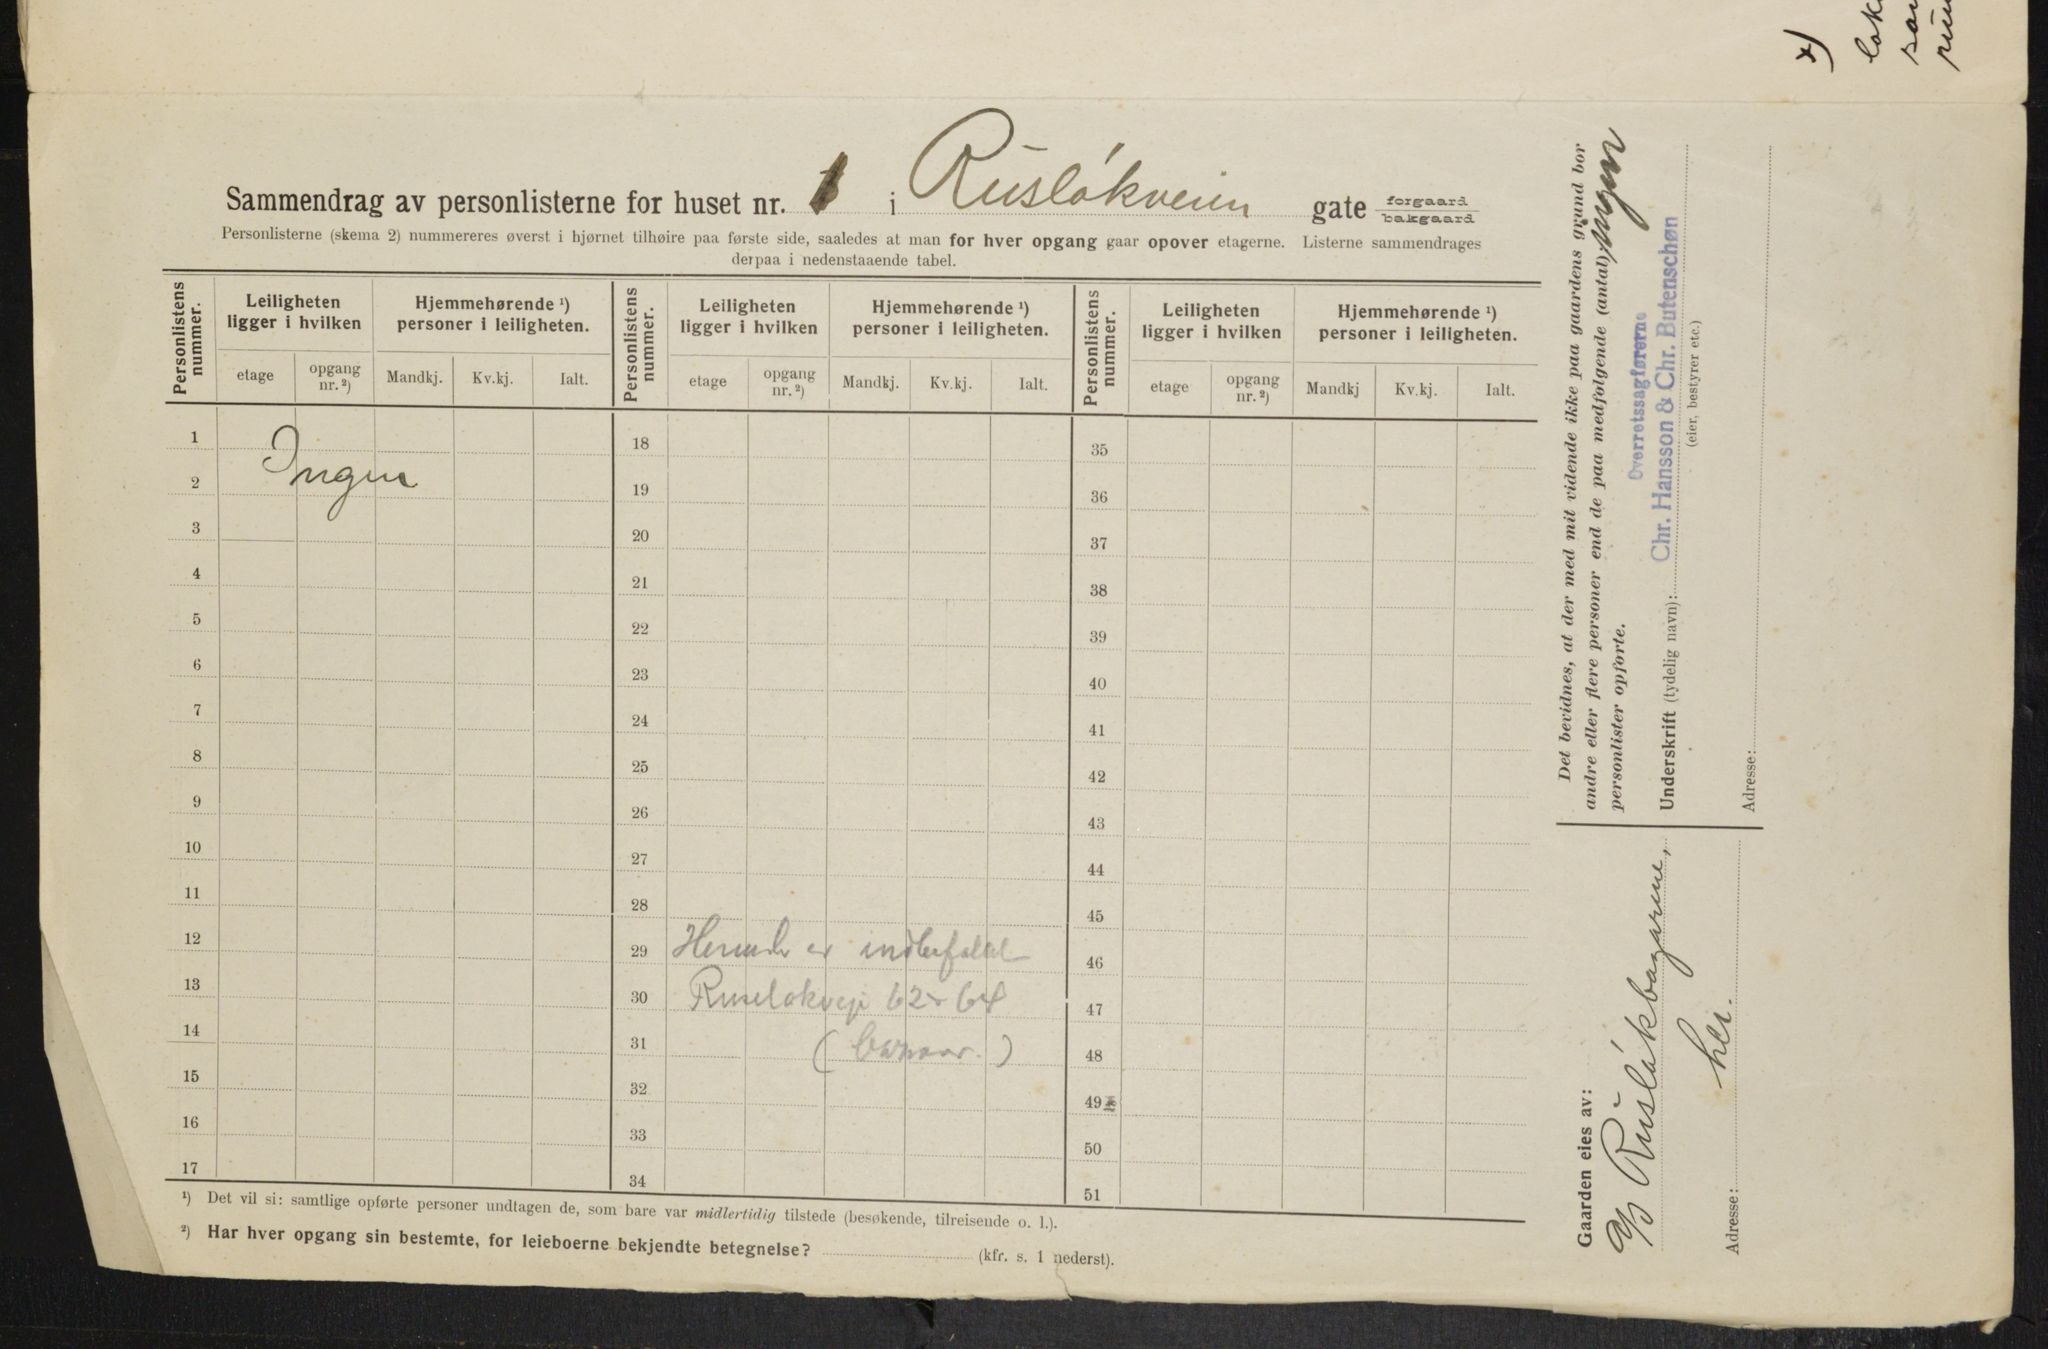 Sammendrag av personlisterne for huset nr. i Rusløkveien gate forgaard bakgaard
Personlisterne (skema 2) nummereres øverst i hjørnet tilhøire paa første side, saaledes at man for hver opgang gaar opover etagerne. Listerne sammendrages
derpaa i nedenstaaende tabel.
Personlistens nummer. Leiligheten ligger i hvilken Hjemmehørende ¹) personer i leiligheten. Personlistens nummer. Leiligheten ligger i hvilken Hjemmehørende ¹) personer i leiligheten. Personlistens nummer. Leiligheten ligger i hvilken Hjemmehørende ¹) personer i leiligheten.
etage opgang nr. ²) Mandkj. Kv.kj. Ialt. etage opgang nr. ²) Mandkj. Kv.kj. Ialt. etage opgang nr. ²) Mandkj Kv.kj. Ialt.
1 18 35
Ingen
2 19 36
3 20 37
4 21 38
5 22 39
6 23 40
7 24 41
8 25 42
9 26 43
10 27 44
11 28 45
12 29 Herunder er indbefattet 46
13 30 Ruseløkvej 62 64 47
14 31 (bazaar.) 48
15 32 49
16 33 50
17 34 51
¹) Det vil si: samtlige opførte personer undtagen de, som bare var midlertidig tilstede (besøkende, tilreisende o. l.).
²) Har hver opgang sin bestemte, for leieboerne bekjendte betegnelse? (kfr. s. 1 nederst).
Det bevidnes, at der med mit vidende ikke paa gaardens grund bor
andre eller flere personer end de paa medfølgende (antal) ingen
personlister opførte.
Overretssagførerne
Underskrift (tydelig navn): Chr. Hansson & Chr. Butenschøn
(eier, bestyrer etc.)
Adresse:
Gaarden eies av:
A/S Rusløkbazarene,
Adresse: her.
x)